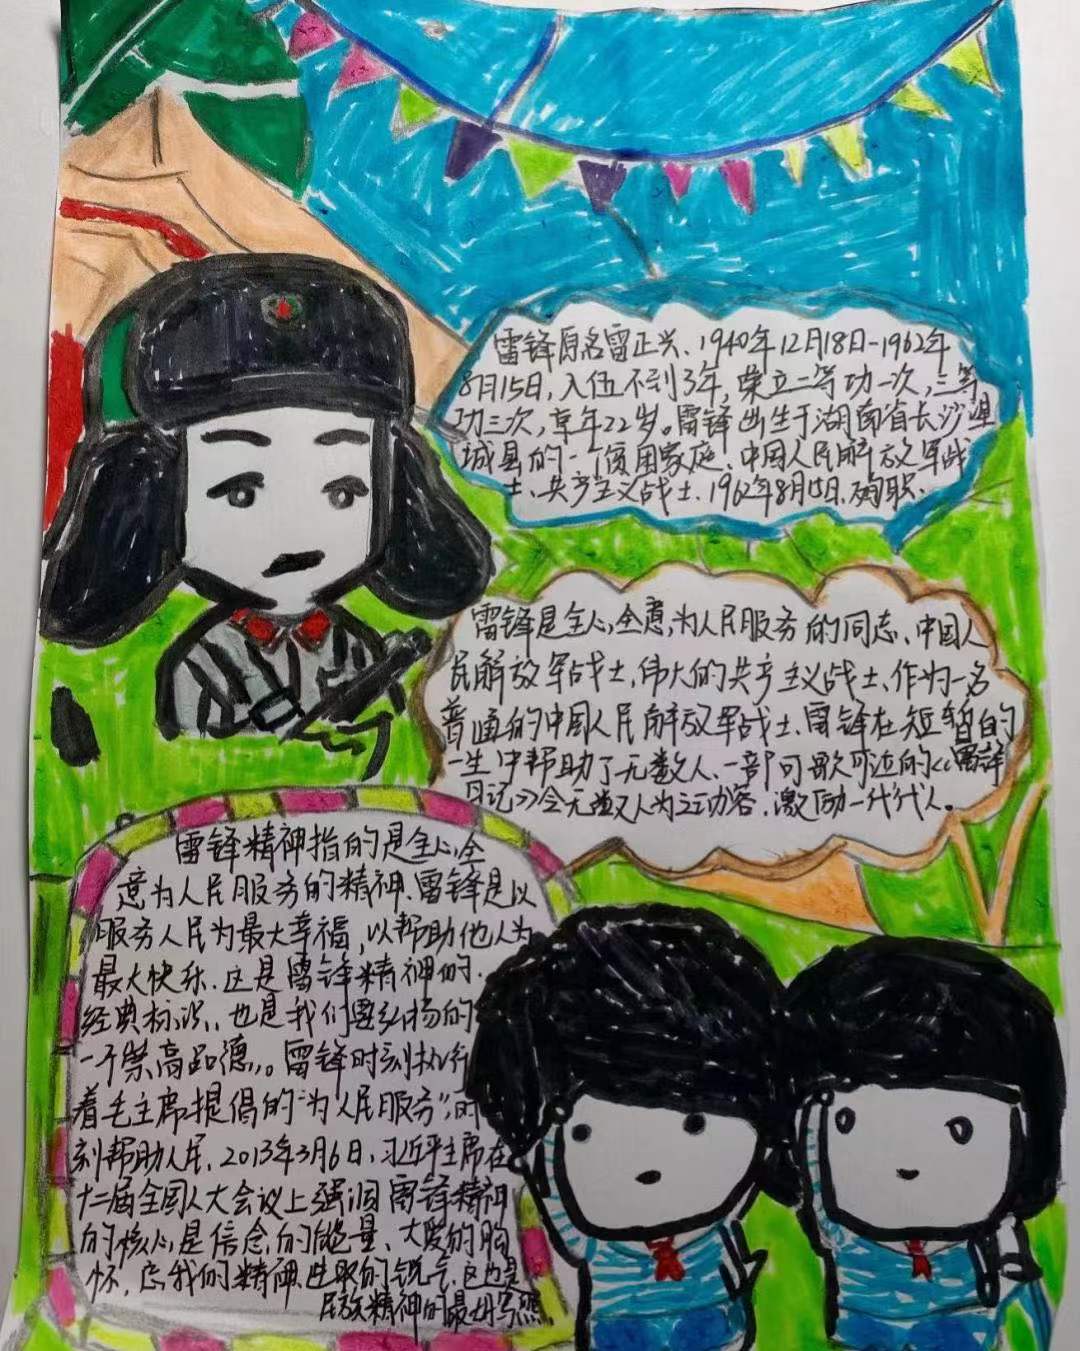 雷锋原名雷正兴、1940年12月18日-1962年
8月15日,入伍不到3年,荣立二等功一次,三等
功三次,享年22岁。雷锋出生于湖南省长沙望
城县的一个贫困家庭、中国人民解放军战
士、共产主义战士、1962年8月15日,殉职、
雷锋是全心全意,为人民服务的同志、中国人
民解放军战士,伟大的共产主义战士、作为一名
普通的中国人民解放军战士、雷锋在短暂的
一生中帮助了无数人、一部可歌可泣的《雷锋
日记》令无数人为之动容、激励一代代人。
雷锋精神指的是全心全
意为人民服务的精神、雷锋是以
服务人民为最大幸福,以帮助他人为
最大快乐、这是雷锋精神的、
经典标识、也是我们要弘扬的
一个崇高品德。雷锋时刻执行
着毛主席提倡的"为人民服务",时
刻帮助人民、2013年3月6日、习近平主席在
十二届全国人大会议上强调雷锋精神
的核心是信念的能量、大爱的胸
怀、忘我的精神、进取的锐气、这也是
民族精神的最好写照